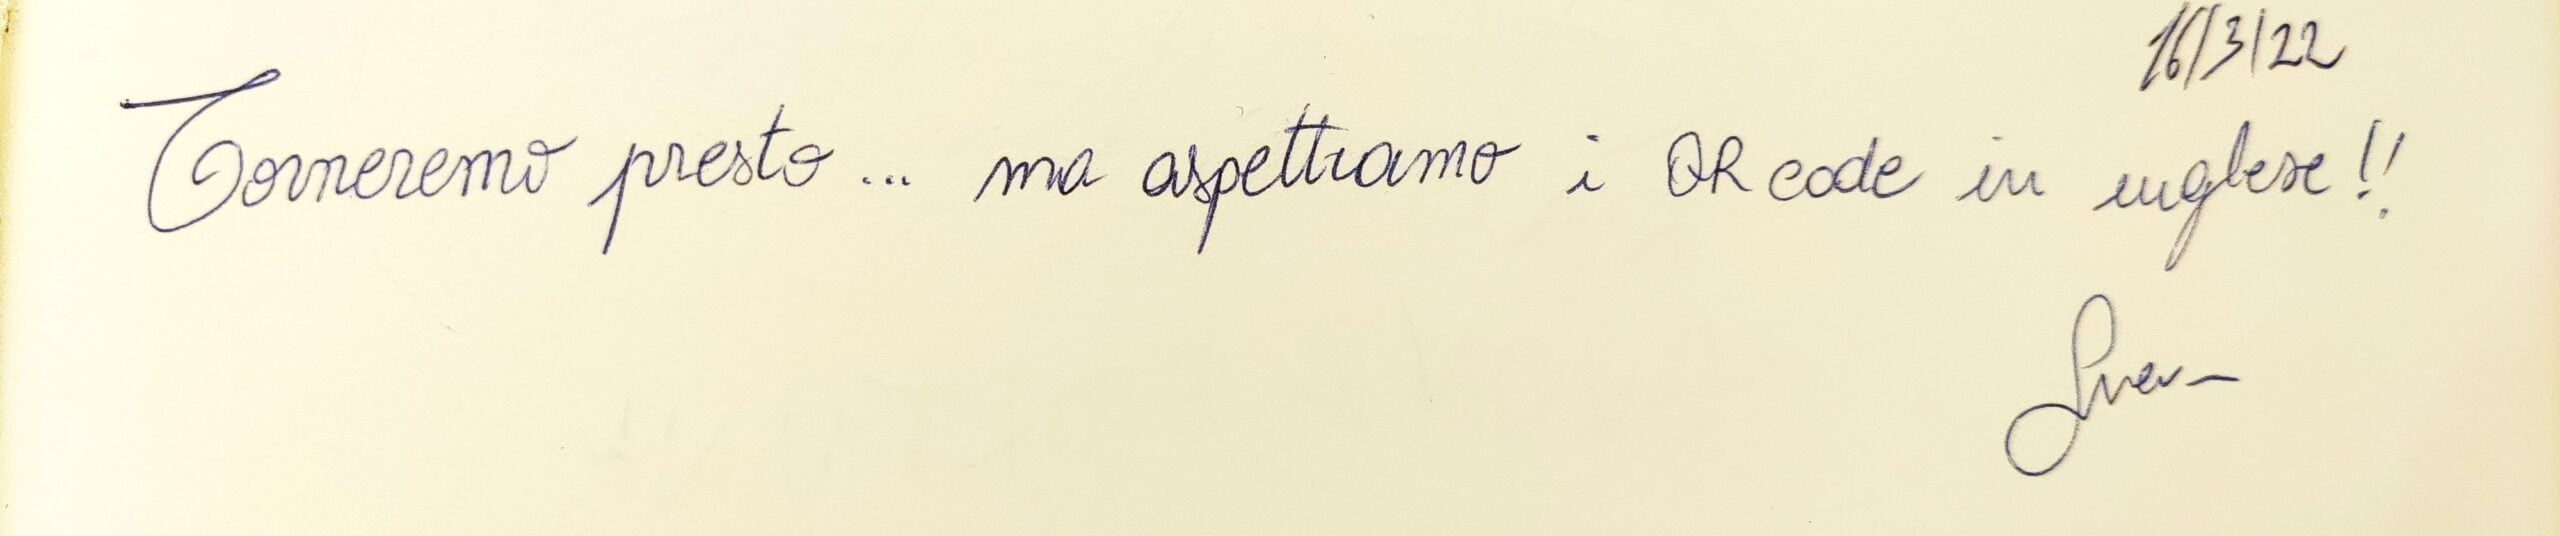 16/3/22
Torneremo presto... ma aspettiamo i QR code in inglese!!